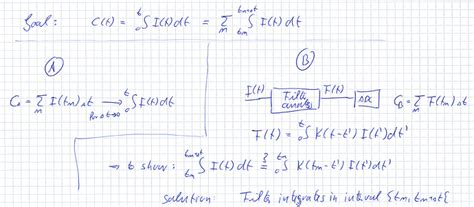 Goal: C(t) = ₀∫ᵗ I(t)dt = Σₘ ₜₘ∫ᵗᵐ⁺ᐃᵗ I(t)dt
A
C₀ = Σₘ I(tₘ)Δt → ₀∫ᵗ I(t)dt
for Δt→0
B
I(t) Filter F(t) ADC C_B = Σₘ F(tₘ)Δt
F(t) = ₀∫ᵗ K(t-t') I(t')dt'
→ to show: ₜₘ∫ᵗᵐ⁺ᐃᵗ I(t)dt ≟ ₀∫ᵗᵐ K(tₘ-t') I(t')dt'
solution: Filter integrates in interval {tₘ, tₘ+Δt{